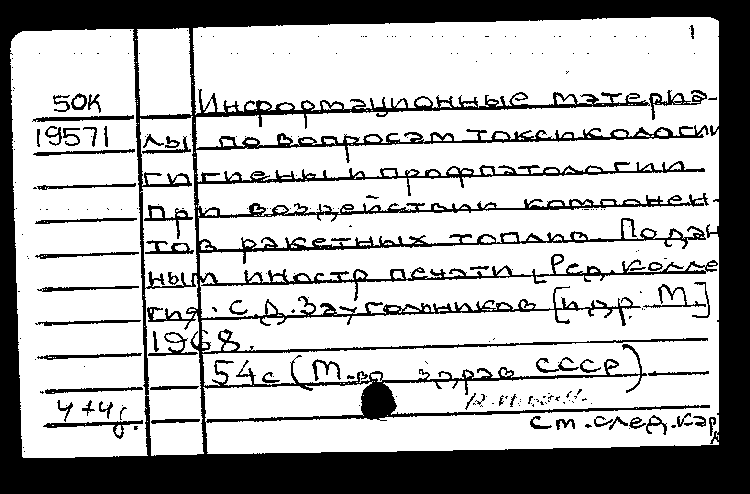 1
50К Информационные материа-
19571 лы по вопросам токсикологии
гигиены и профпатологии
при воздействии компонен-
тов ракетных топлив. По дан
ным иностр печати. [Ред. колле
гия: С.Д. Заугольников [и др. М.]
1968.
54с (М-во здрав СССР).
4+4
см. след. кар